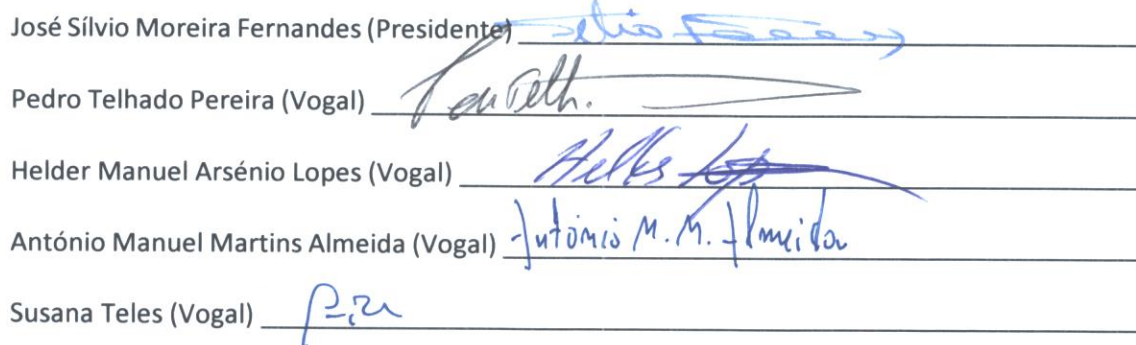 José Sílvio Moreira Fernandes (Presidente)
Pedro Telhado Pereira (Vogal)
Helder Manuel Arsénio Lopes (Vogal)
António Manuel Martins Almeida (Vogal) António M. M. Almeida
Susana Teles (Vogal)